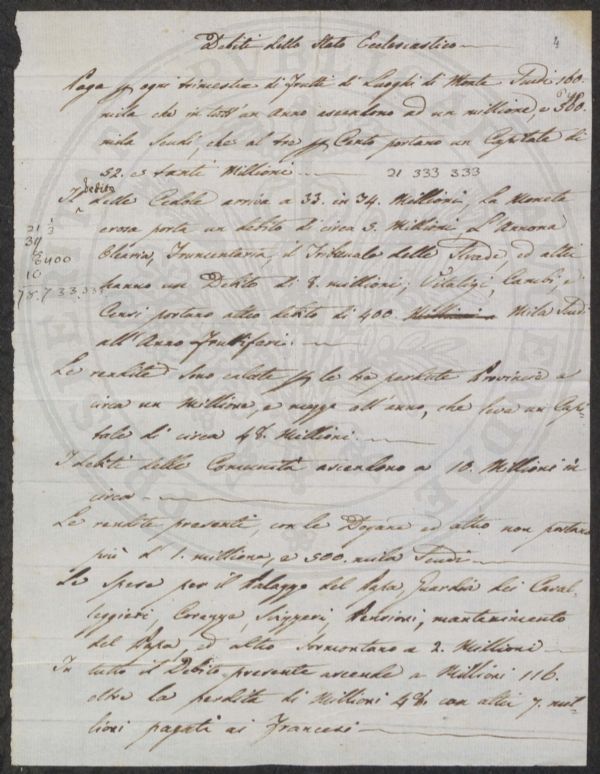 Debiti dello Stato Ecclesiastico
4
Paga p ogni trimestre di Frutti di Luoghi di Monte Scudi 160.
mila che in tutt'un Anno ascendono ad un millione, e
mila Scudi, che al tre p Cento portano un Capitale di
52. e tanti Millioni 21 333 333
Il debito delle Cedole arriva a 33. in 34. Millioni, La Moneta
erosa porta un debito di circa 5. Millioni L'Annona
Olearia, Frumentaria, il Tribunale delle Strade, ed altri
hanno un Debito di 8. millioni; Vitalizj, Cambi, e
Censi portano altro debito di 400. Millioni Mila Scudi
all'Anno Fruttiferi.
21 1/3
34
8
5400
10
78.733.333
Le rendite sono calate p le tre perdute Provincie a
circa un Millione, e mezzo all'anno, che leva un Capi-
tale di circa 48. Millioni.
I debiti delle Comunità ascendono a 10. Millioni in
circa
Le rendite presenti, con le Dogane ed altro non portano
più d'1. millione, e 500. mila Scudi
Le spese per il Palazzo del Papa, Guardia dei Caval-
leggieri, Corazze, Svizzeri, Pensioni, mantenimento
del Papa, ed altro sormontano a 2. Millioni
In tutto il Debito presente ascende a Millioni 116.
oltre la perdita di Millioni 48. con altri 7. mil-
lioni pagati ai Francesi